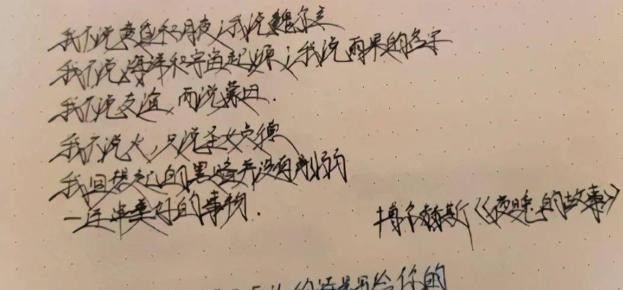 我不说黄昏和月夜；我说魏尔兰
我不说海洋和宇宙起源；我说雨果的名字
我不说友谊，而说蒙田.
我不说火，只说圣女贞德
我回想起的黑暗并没有削弱
一连串美好的事物.
博尔赫斯《夜晚的故事》
给你的